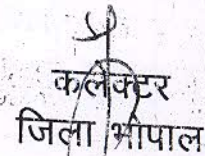 कलेक्टर
जिला भोपाल